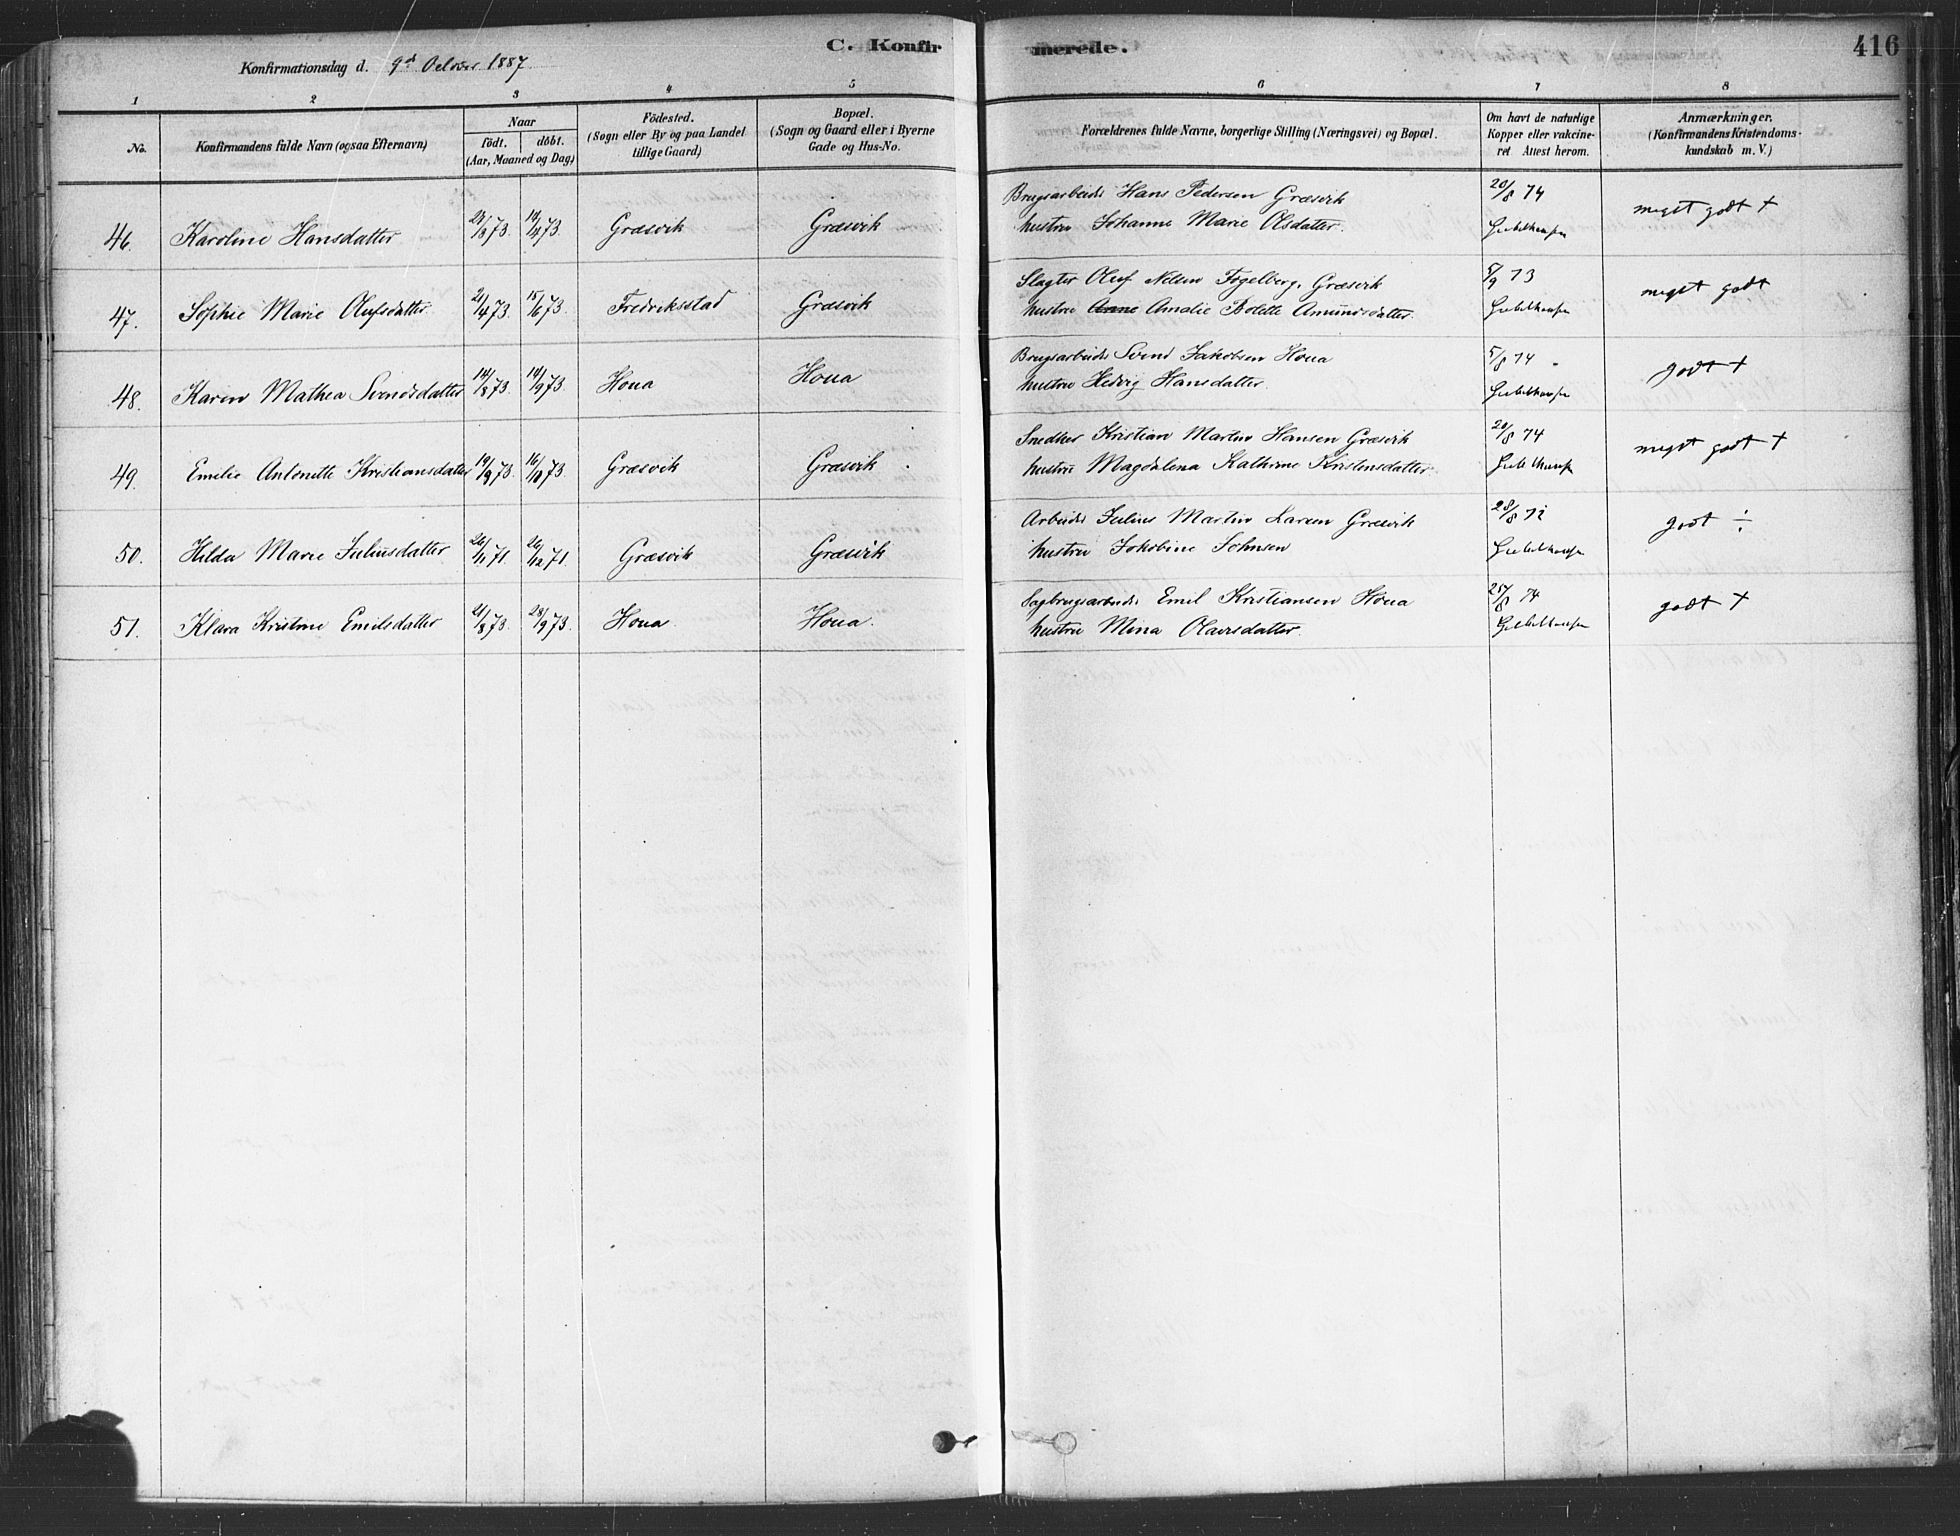 C. Konfirmerede.
416
Konfirmationsdag d. 9d October 1887.
1 2 3 4 5 6 7 8
No.
Konfirmandens fulde Navn (ogsaa Efternavn)
Naar
födt. döbt.
(Aar, Maaned og Dag)
Födested.
(Sogn eller By og paa Landet
tillige Gaard)
Bopæl.
(Sogn og Gaard eller i Byerne
Gade og Hus-No.
Forældrenes fulde Navne, borgerlige Stilling (Næringsvei) og Bopæl.
Om havt de naturlige
Kopper eller vakcine-
ret Attest herom.
Anmærkninger.
(Konfirmandens Kristendoms-
kundskab m. V.)
46. Karoline Hansdatter 73. 14/4 73. Græsvik Græsvik
Brugsarbeider Hans Pedersen Græsvik 20/8 74 meget godt +
hustru Johanne Marie Olsdatter.
47. Sophie Marie Olufsdatter 21/4 73. 15/6 73. Fredriksstad Græsvik
Slagter Oluf Nilsen Fogelberg, Græsvik 5/9 73 meget godt
hustru Anne Amalie Bolette Amundsdatter.
48. Karen Mathea Svendsdatter 14/8 73. 14/9 73. Houa Houa
Brugsarbeider Svend Jakobsen Houa 5/8 74 godt +
hustru Hedvig Hansdatter.
49. Emilie Antonette Kristiansdatter 19/9 73. 16/10 73. Græsvik Græsvik
Snedker Kristian Martin Hansen Græsvik 20/8 74 meget godt +
hustru Magdalena Kathrine Kristensdatter.
50. Hilda Marie Juliusdatter 26/11 71. 26/12 71. Græsvik Græsvik
Arbeider Julius Martin Larsen Græsvik 28/8 72 godt ÷
hustru Jakobine Johnsen
51. Klara Kristine Emilsdatter 21/8 73. 28/9 73. Houa. Houa.
Sagbrugsarbeider Emil Kristiansen Houa 25/8 74 godt +
hustru Mina Olavsdatter.